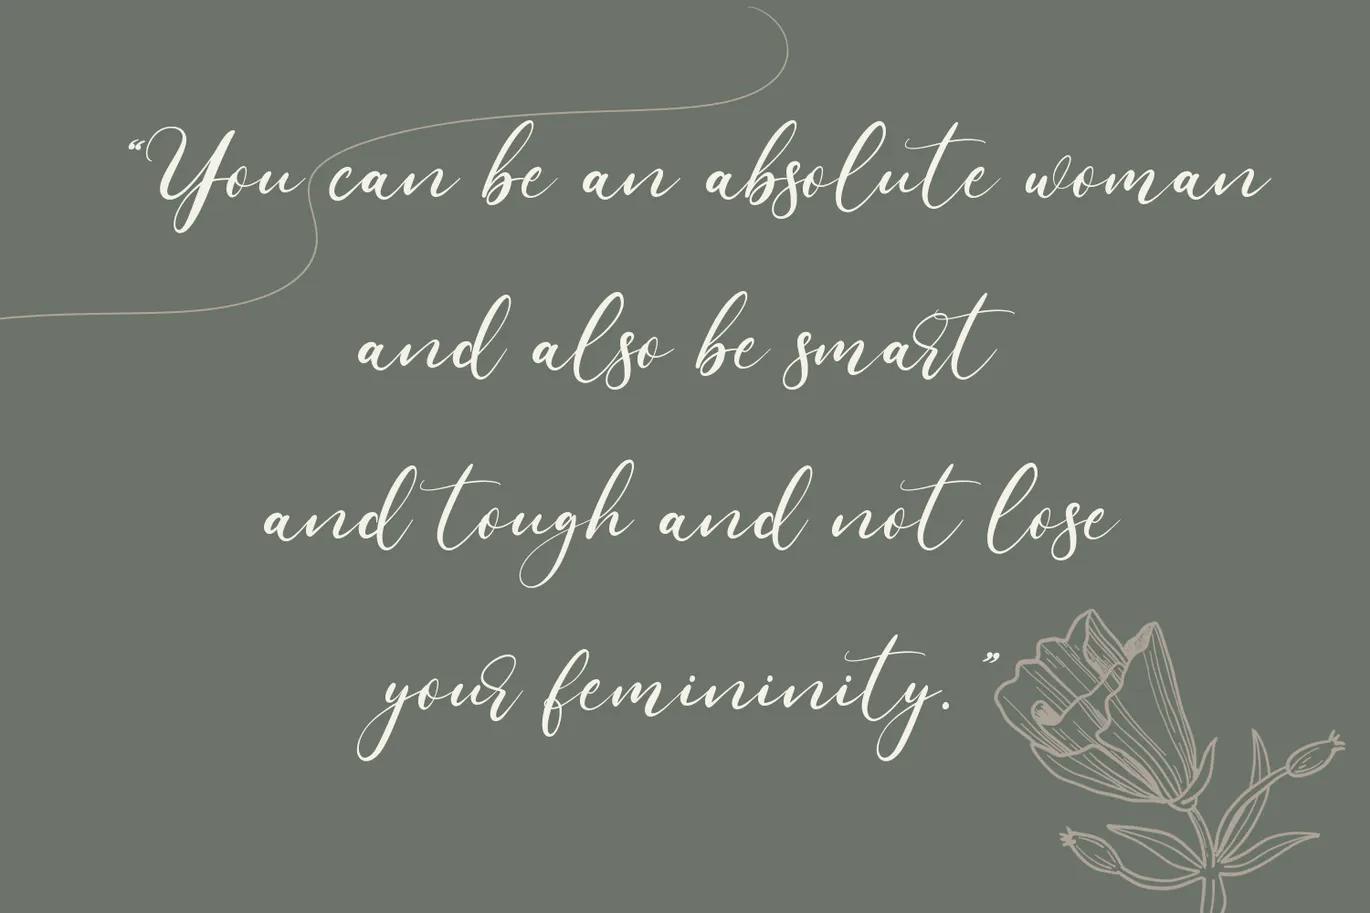 “You can be an absolute woman
and also be smart
and tough and not lose
your femininity.”